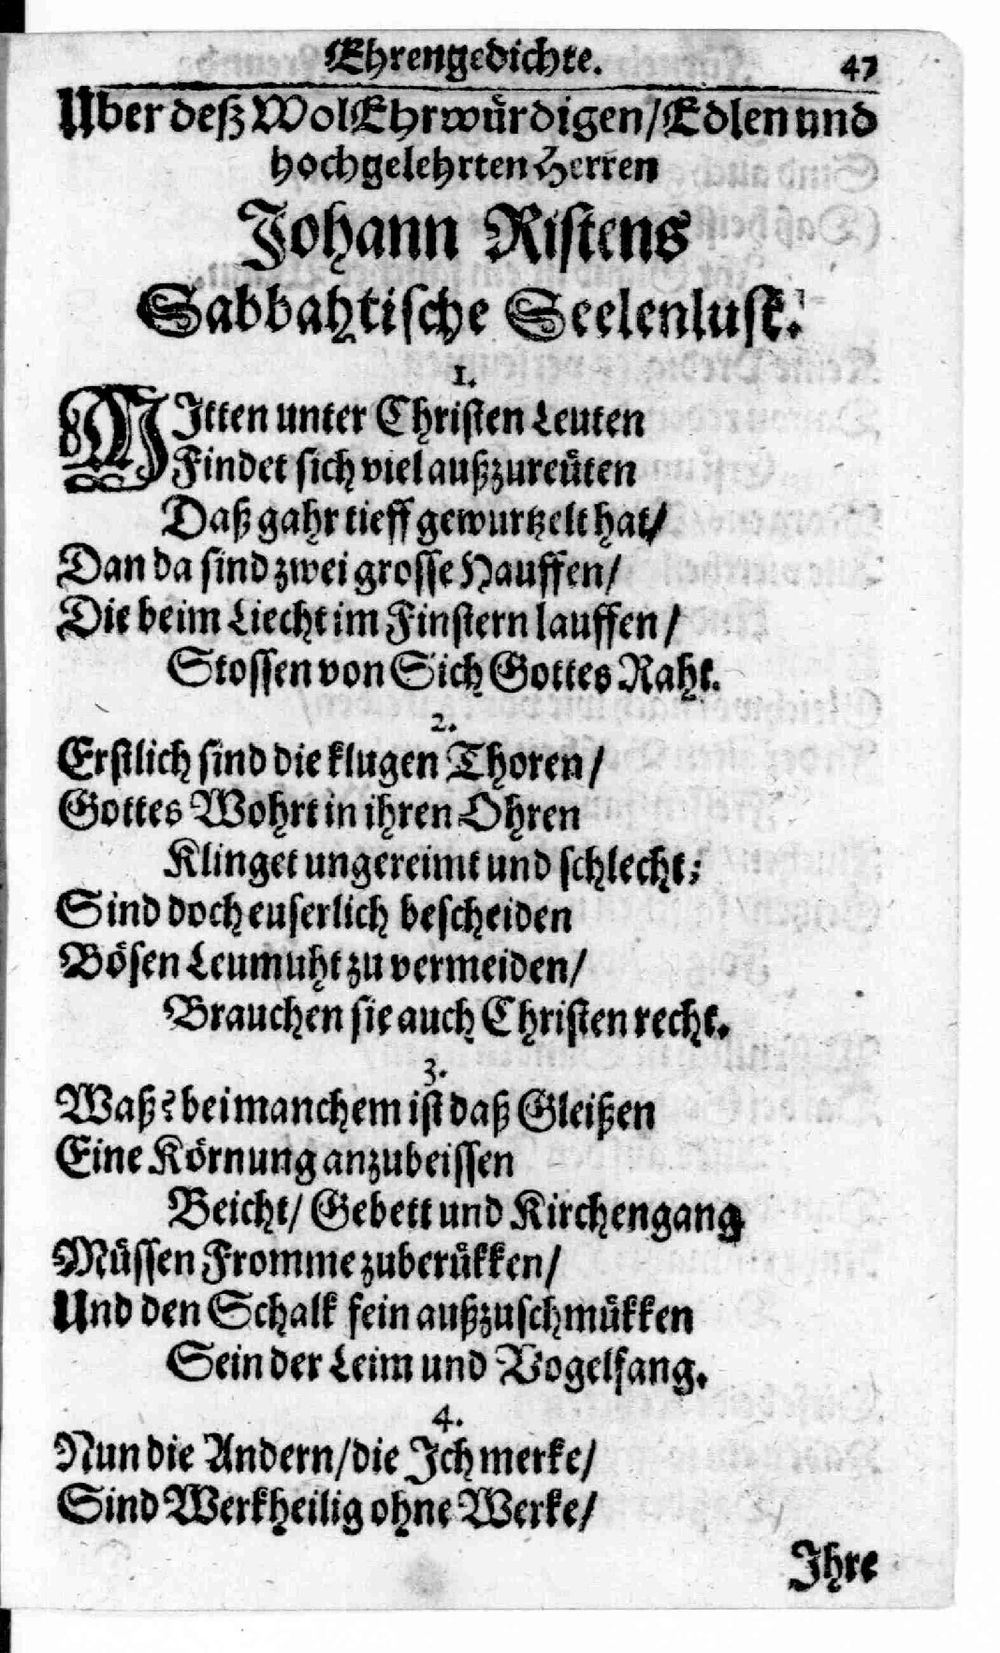 Ehrengedichte. 47
Uber deß WolEhrwürdigen/Edlen und
hochgelehrten Herren
Johann Ristens
Sabbahtische Seelenlust.
1.
MItten unter Christen Leuten
Findet sich viel außzureüten
Daß gahr tieff gewurtzelt hat/
Dan da sind zwei grosse Hauffen/
Die beim Liecht im Finstern lauffen/
Stossen von Sich Gottes Raht.
2.
Erstlich sind die klugen Thoren/
Gottes Wohrt in ihren Ohren
Klinget ungereimt und schlecht;
Sind doch euserlich bescheiden
Bösen Leumuht zu vermeiden/
Brauchen sie auch Christen recht.
3.
Waß? bei manchem ist daß Gleißen
Eine Körnung anzubeissen
Beicht/ Gebett und Kirchengang
Müssen Fromme zuberükken/
Und den Schalk fein außzuschmükken
Sein der Leim und Vogelfang.
4.
Nun die Andern/die Ich merke/
Sind Werkheilig ohne Werke/
Ihre